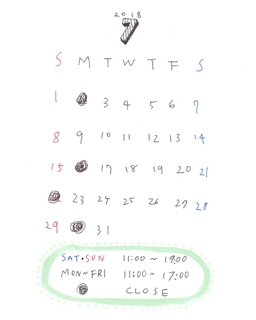 2018
7
S M T W T F S
1 3 4 5 6 7
8 9 10 11 12 13 14
15 17 18 19 20 21
23 24 25 26 27 28
29 31
SAT・SUN 11:00 ~ 19:00
MON~FRI 11:00 ~ 17:00
CLOSE